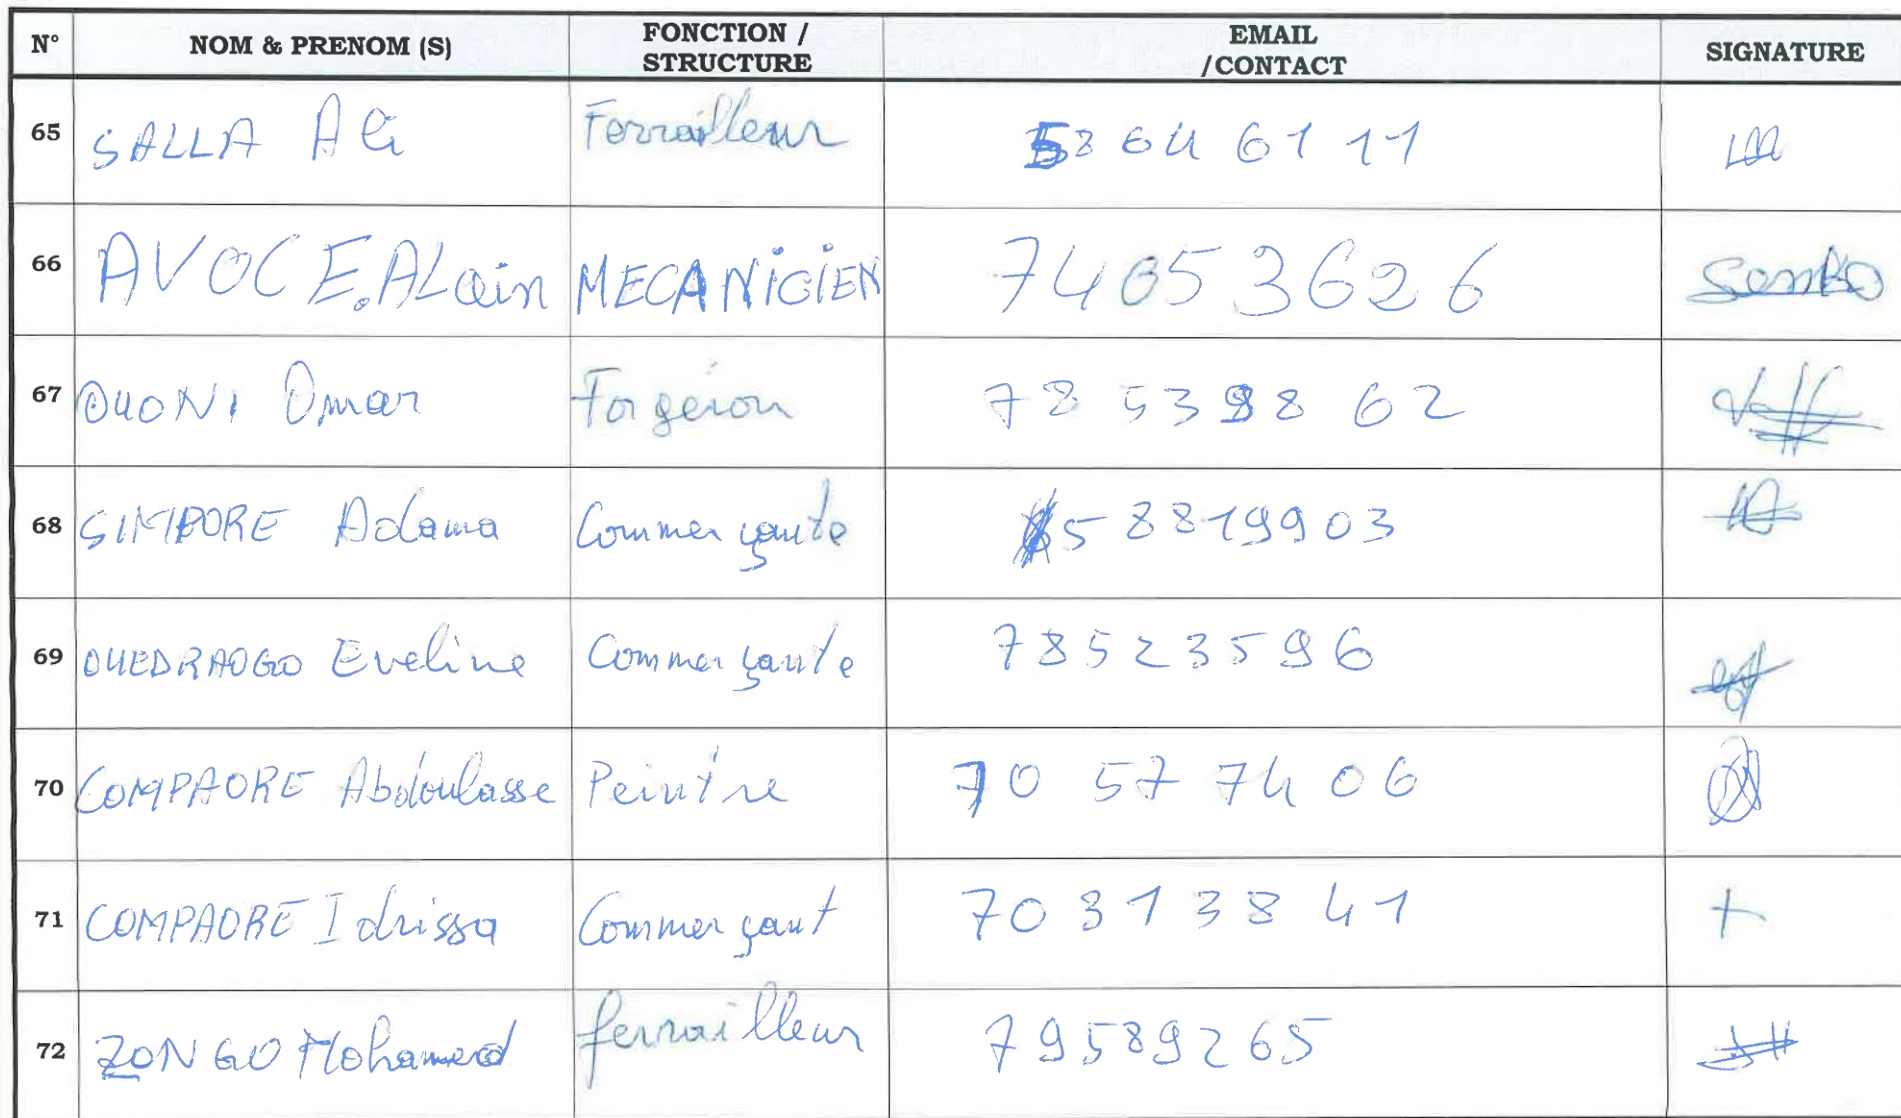 N° NOM & PRENOM (S) FONCTION / STRUCTURE EMAIL /CONTACT SIGNATURE
65 SALLA Ali Ferrailleur 58 64 61 11
66 AVOCE.ALain MECANICIEN 74053626
67 OUONI Omar Forgeron 78 53 98 62
68 SIMPORE Adama Commerçante 58819903
69 OUEDRAOGO Eveline Commerçante 78523596
70 COMPAORE Abdoulasse Peintre 70 57 74 06
71 COMPAORE Idrissa Commerçant 70313841 +
72 ZONGO Mohamed ferrailleur 79589265